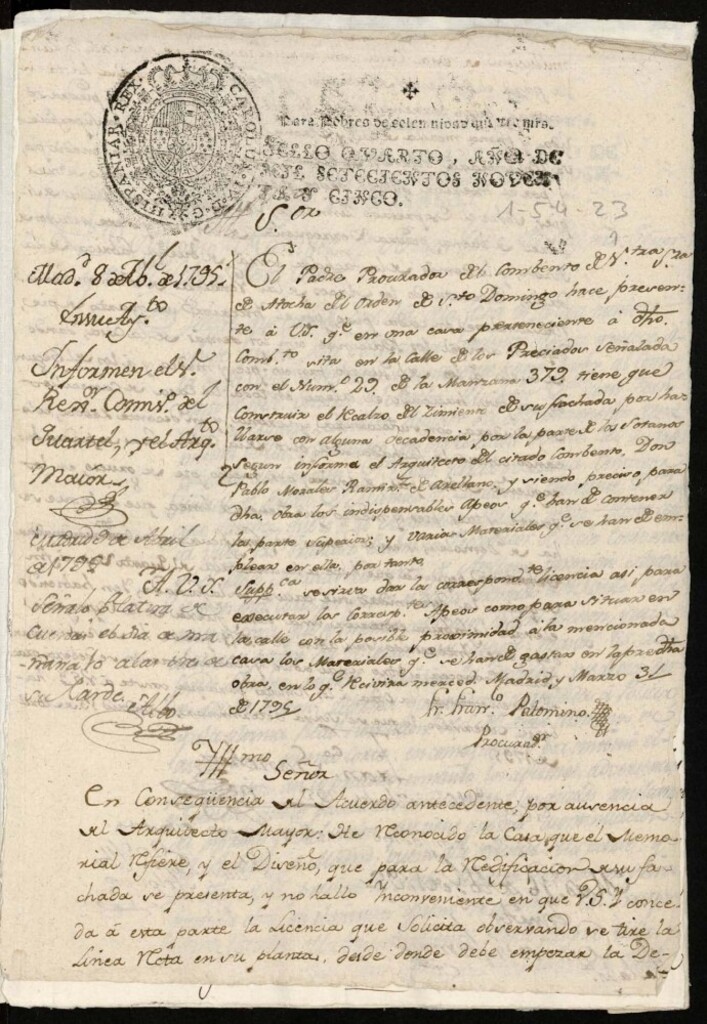 HISPANIAR. REX. CAROLUS. IV. D. G.
Para Pobres de solemnidad quatro mrs.
SELLO QUARTO, AÑO DE
MIL SETECIENTOS NOVEN
TA Y CINCO.
1-54-23
S.or
El Padre Procurador del Combento de N.tra Sra
de Atocha del Orden de S.to Domingo hace presen-
te á V.S. q.e en una casa perteneciente á dho.
Comb.to sita en la Calle de los Preciados señalada
con el Num.o 29. de la Manzana 379. tiene que
Construir el Realzo del Zimiento de su fachada por ha-
llarse con alguna decadencia, por la parte de los Sotanos
segun informa el Arquitecto del citado Combento, Don
Pablo Morales Ramir.z de Arellano, y siendo preciso, para
dha. obra los indispensables Apeos q.e han de contener
la parte superior; y varios Materiales q.e se han de em-
plear en ella, por tanto,
Supp.ca se sirva dar la correspond.te licencia asi para
executar los corresp.tes Apeos como para situar en
la calle con la posible proximidad á la mencionada
casa los Materiales q.e se han de gastar en la predha
obra, en lo q.e Recivira merced. Madrid y Marzo 31
de 1795
Fr. Fran.co Palomino
Procurad.or
Mad.d 8 de Ab.l de 1795.
En su Ay.to
Informen el S.r
Rex.or Comis.o del
Quartel, y el Arq.to
Maior
de Abril
de 1795
A. V. S.
Señalo
el dia de ma
ñana
su tarde.
Yll.mo
Señor
En Conseqüencia del Acuerdo antecedente, por ausencia
del Arquitecto Mayor: He Reconocido la Casa, que el Memo-
rial Refiere, y el Diseño, que para la Redificacion de su fa-
chada se presenta, y no hallo Inconveniente en que V.S.Y. conce-
da á esta parte la Licencia que Solicita observando se tire la
Linea Recta en su planta, desde donde debe empezar la De-